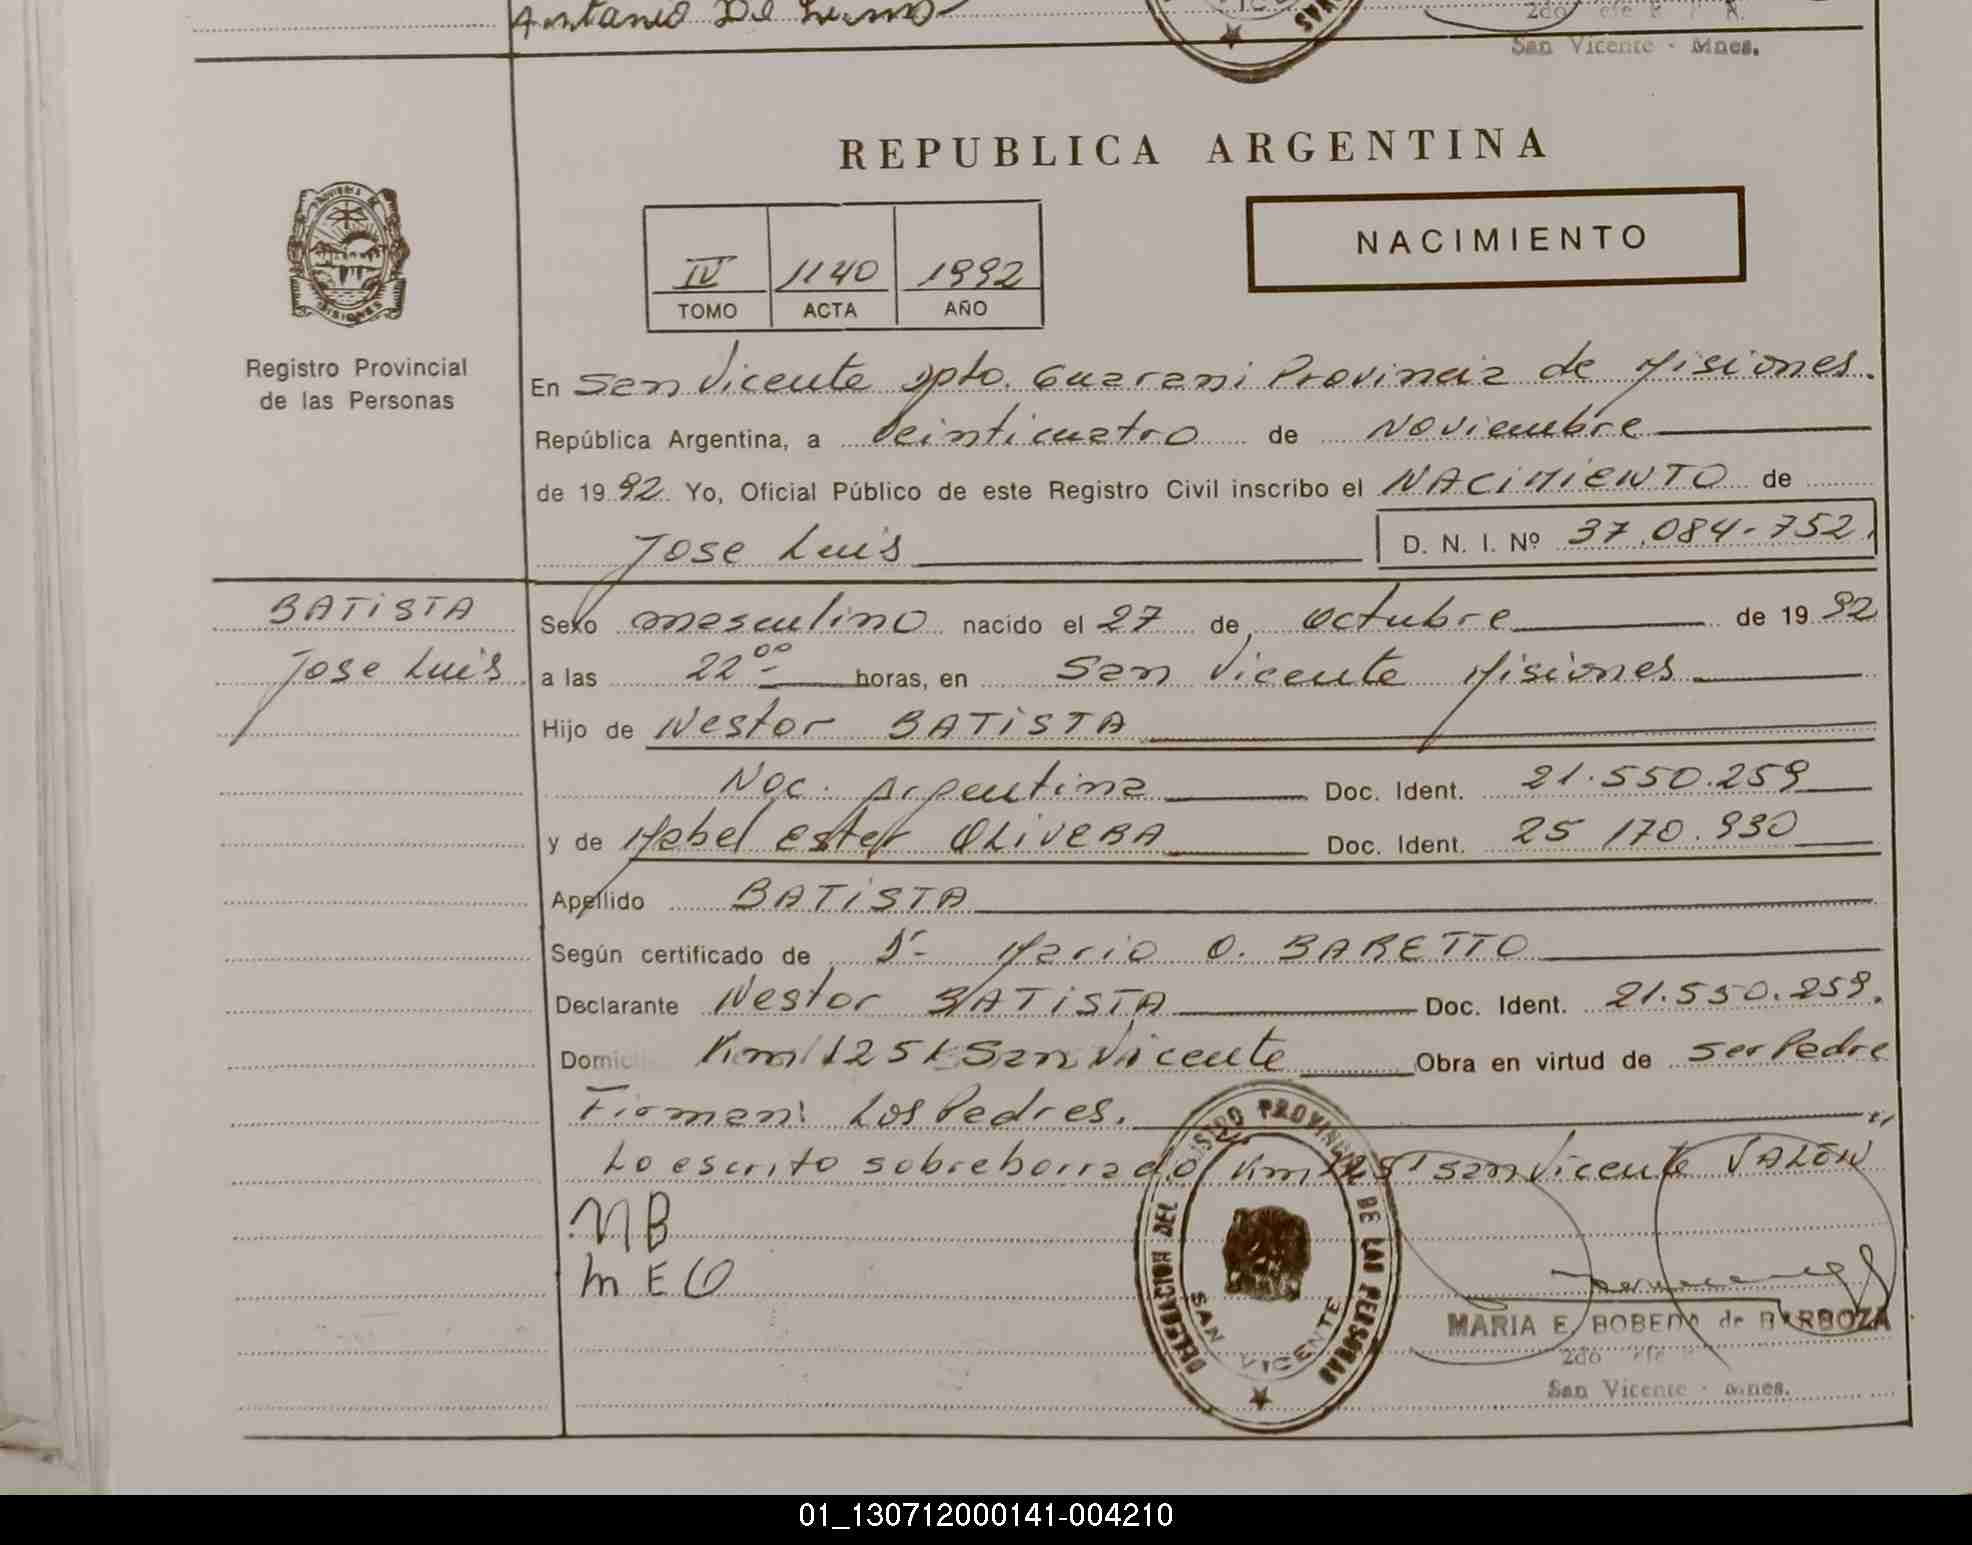 Antonio De Lima
San Vicente - Mnes.
REPUBLICA ARGENTINA
NACIMIENTO
IV 1140 1992
TOMO ACTA AÑO
MISIONES
Registro Provincial
de las Personas
En San Vicente Dpto. Guarani Provincia de Misiones.
República Argentina, a Veinticuatro de Noviembre
de 1992 Yo, Oficial Público de este Registro Civil inscribo el NACIMIENTO de
Jose Luis D. N. I. Nº 37.084.752.
BATISTA
Jose Luis
Sexo masculino nacido el 27 de Octubre de 1992
a las 22 00 horas, en San Vicente Misiones
Hijo de Nestor BATISTA
Nac. Argentina Doc. Ident. 21.550.259
y de Mabel Ester OLIVERA Doc. Ident. 25 170.930
Apellido BATISTA
Según certificado de Dr Mario O. BARETTO
Declarante Nestor BATISTA Doc. Ident. 21.550.259.
Domici Km 1251 San Vicente Obra en virtud de ser Padre
Firman: Los Padres.
Lo escrito sobreborrado Km 1251 San Vicente VALEN
NB
MEO
DELEGACION DEL REGISTRO PROVINCIAL DE LAS PERSONAS
SAN VICENTE
MARIA E. BOBEDA de BARBOZA
2do
San Vicente - Mnes.
01_130712000141-004210